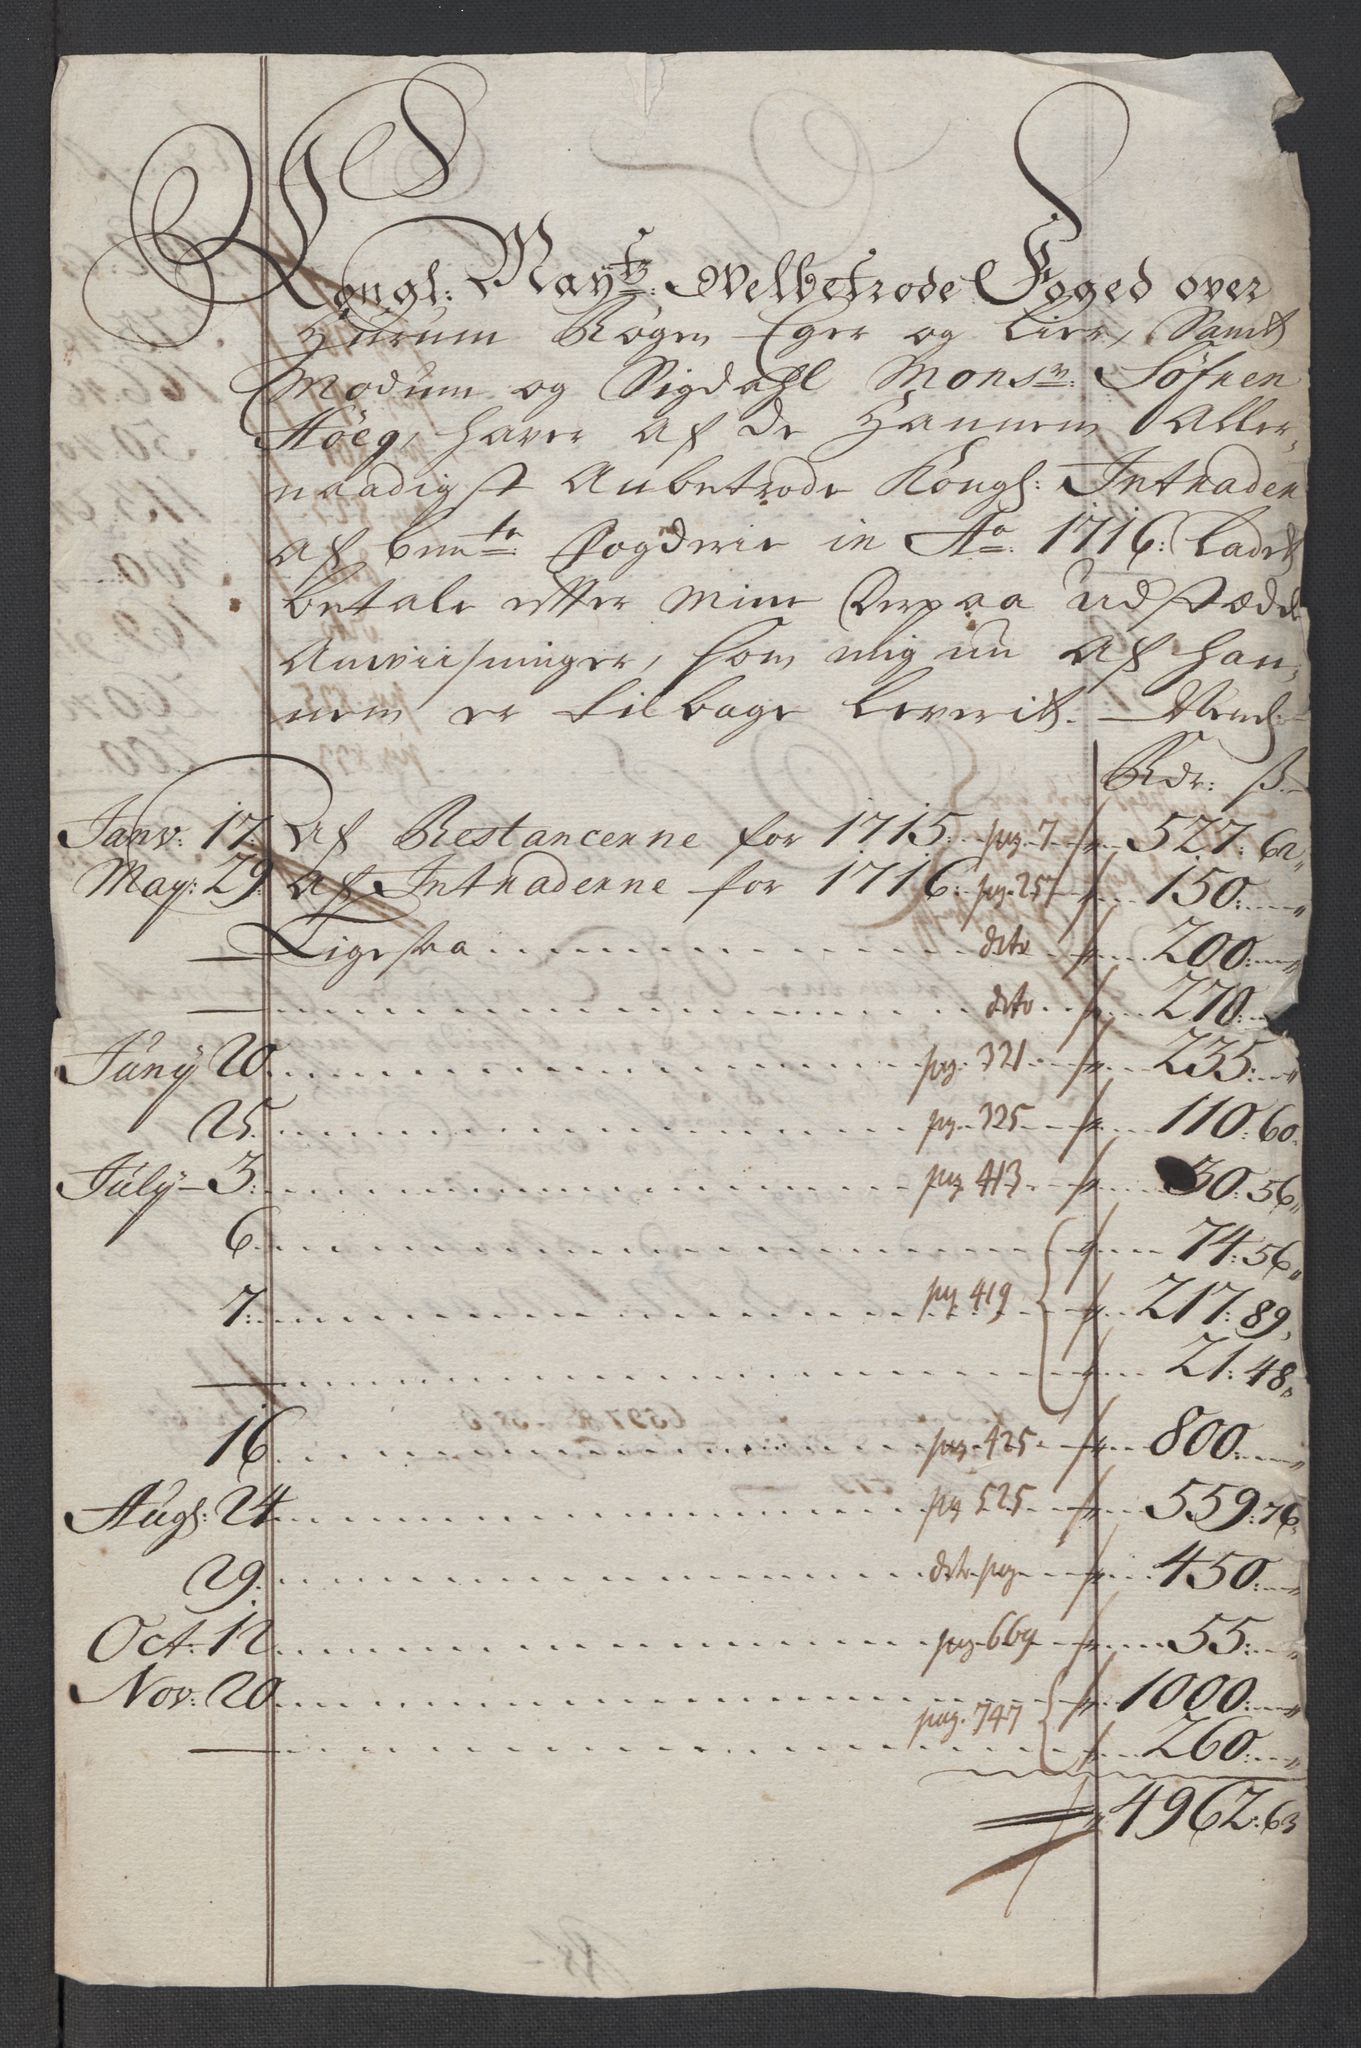 Kongl: May:tz Velbetrode Foged over
Hurum Rögen Eger og Lier, Samt
Modum og Sigdahl Monsr: Söfren
Höeg, haver af de Hannem Aller,,
naadigst Anbetrode Kongl: Intrader
af bem:te fogderie in Ao: 1716: ladet
betale efter mine Derpaa udstædde
Anviisninger, som mig nu af han,,
nem er tilbage leverit. Nemd:
Rdr: ß
Janv: 17. Af Restancerne for 1715. pag. 7 527: 62
May: 29: Af Intraderne for 1716: pag. 257 150:
Ligesaa dito 200:
dito 270:
Juny 20 pag. 321 235:
25. pag. 325 110: 60
July 3: pag 413 30: 56
6. 74: 56
7: pag 419 217: 89
21: 48
16 pag. 425 800:
Aug: 24 pag 525 559: 76
29: dito pag 450:
Oct. 12 pag. 669 55:
Nov: 20 pag. 747 1000:
260:
4962: 63